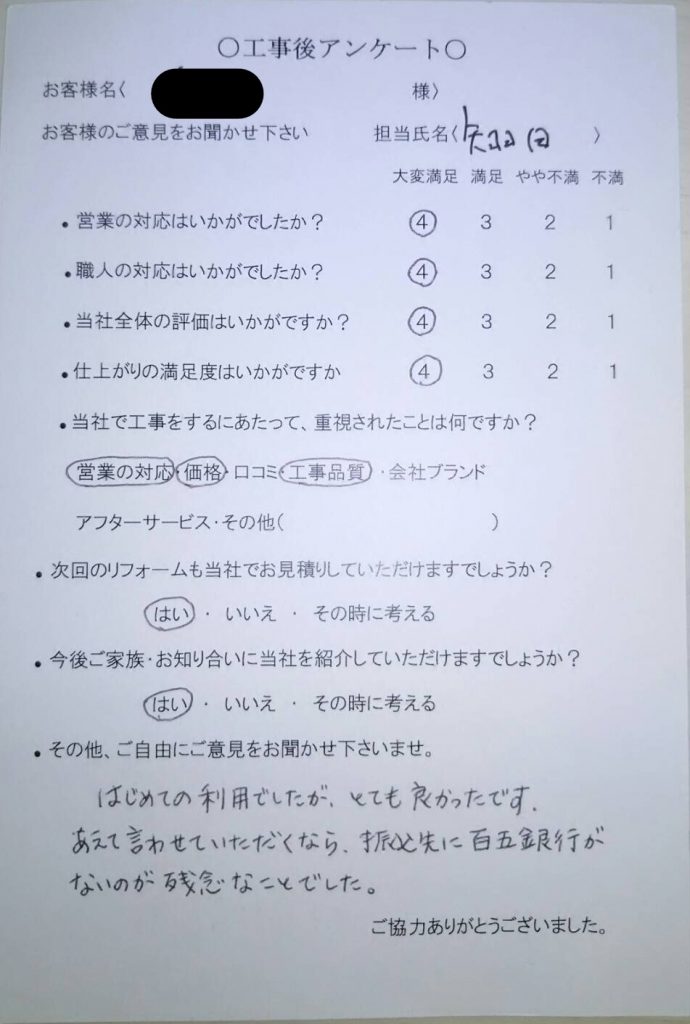 ○工事後アンケート○
お客様名〈 様〉
お客様のご意見をお聞かせ下さい 担当氏名〈 〉
大変満足 満足 やや不満 不満
・営業の対応はいかがでしたか？ 4 3 2 1
・職人の対応はいかがでしたか？ 4 3 2 1
・当社全体の評価はいかがですか？ 4 3 2 1
・仕上がりの満足度はいかがですか 4 3 2 1
・当社で工事をするにあたって、重視されたことは何ですか？
営業の対応・価格・口コミ・工事品質・会社ブランド
アフターサービス・その他( )
・次回のリフォームも当社でお見積りしていただけますでしょうか？
はい ・ いいえ ・ その時に考える
・今後ご家族・お知り合いに当社を紹介していただけますでしょうか？
はい ・ いいえ ・ その時に考える
・その他、ご自由にご意見をお聞かせ下さいませ。
はじめての利用でしたが、とても良かったです。
あえて言わせていただくなら、振込先に百五銀行が
ないのが残念なことでした。
ご協力ありがとうございました。